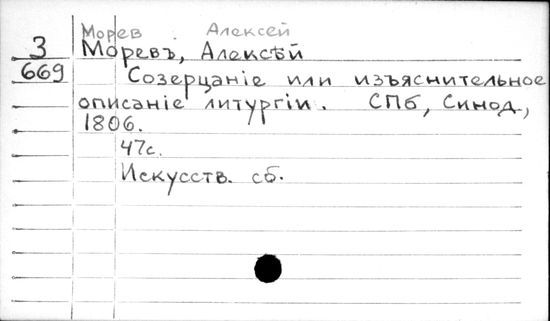 Морев Алексей
З
669
Моревъ, Алексѣй
Созерцанiе или изъяснительное
описанiе литургiи. СПб, Синод.,
1806.
47с.
Искусств. сб.